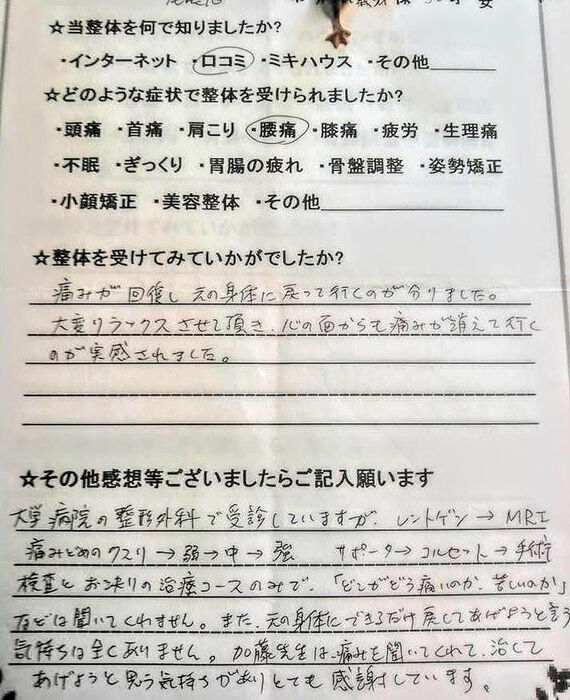 ☆当整体を何で知りましたか?
・インターネット ・口コミ ・ミキハウス ・その他
☆どのような症状で整体を受けられましたか?
・頭痛 ・首痛 ・肩こり ・腰痛 ・膝痛 ・疲労 ・生理痛
・不眠 ・ぎっくり ・胃腸の疲れ ・骨盤調整 ・姿勢矯正
・小顔矯正 ・美容整体 ・その他
☆整体を受けてみていかがでしたか?
痛みが回復し元の身体に戻って行くのが分りました。
大変リラックスさせて頂き、心の面からも痛みが消えて行く
のが実感されました。
☆その他感想等ございましたらご記入願います
大学病院の整形外科で受診していますが、レントゲン→MRI
痛みどめのクスリ→弱→中→強 サポーター→コルセット→手術
検査とお決りの治療コースのみで、「どこがどう痛いのか、苦しいのか」
などは聞いてくれません。また、元の身体にできるだけ戻してあげようと言う
気持ちは全くありません。加藤先生は、痛みを聞いてくれて、治して
あげようと思う気持ちがありとても感謝しています。